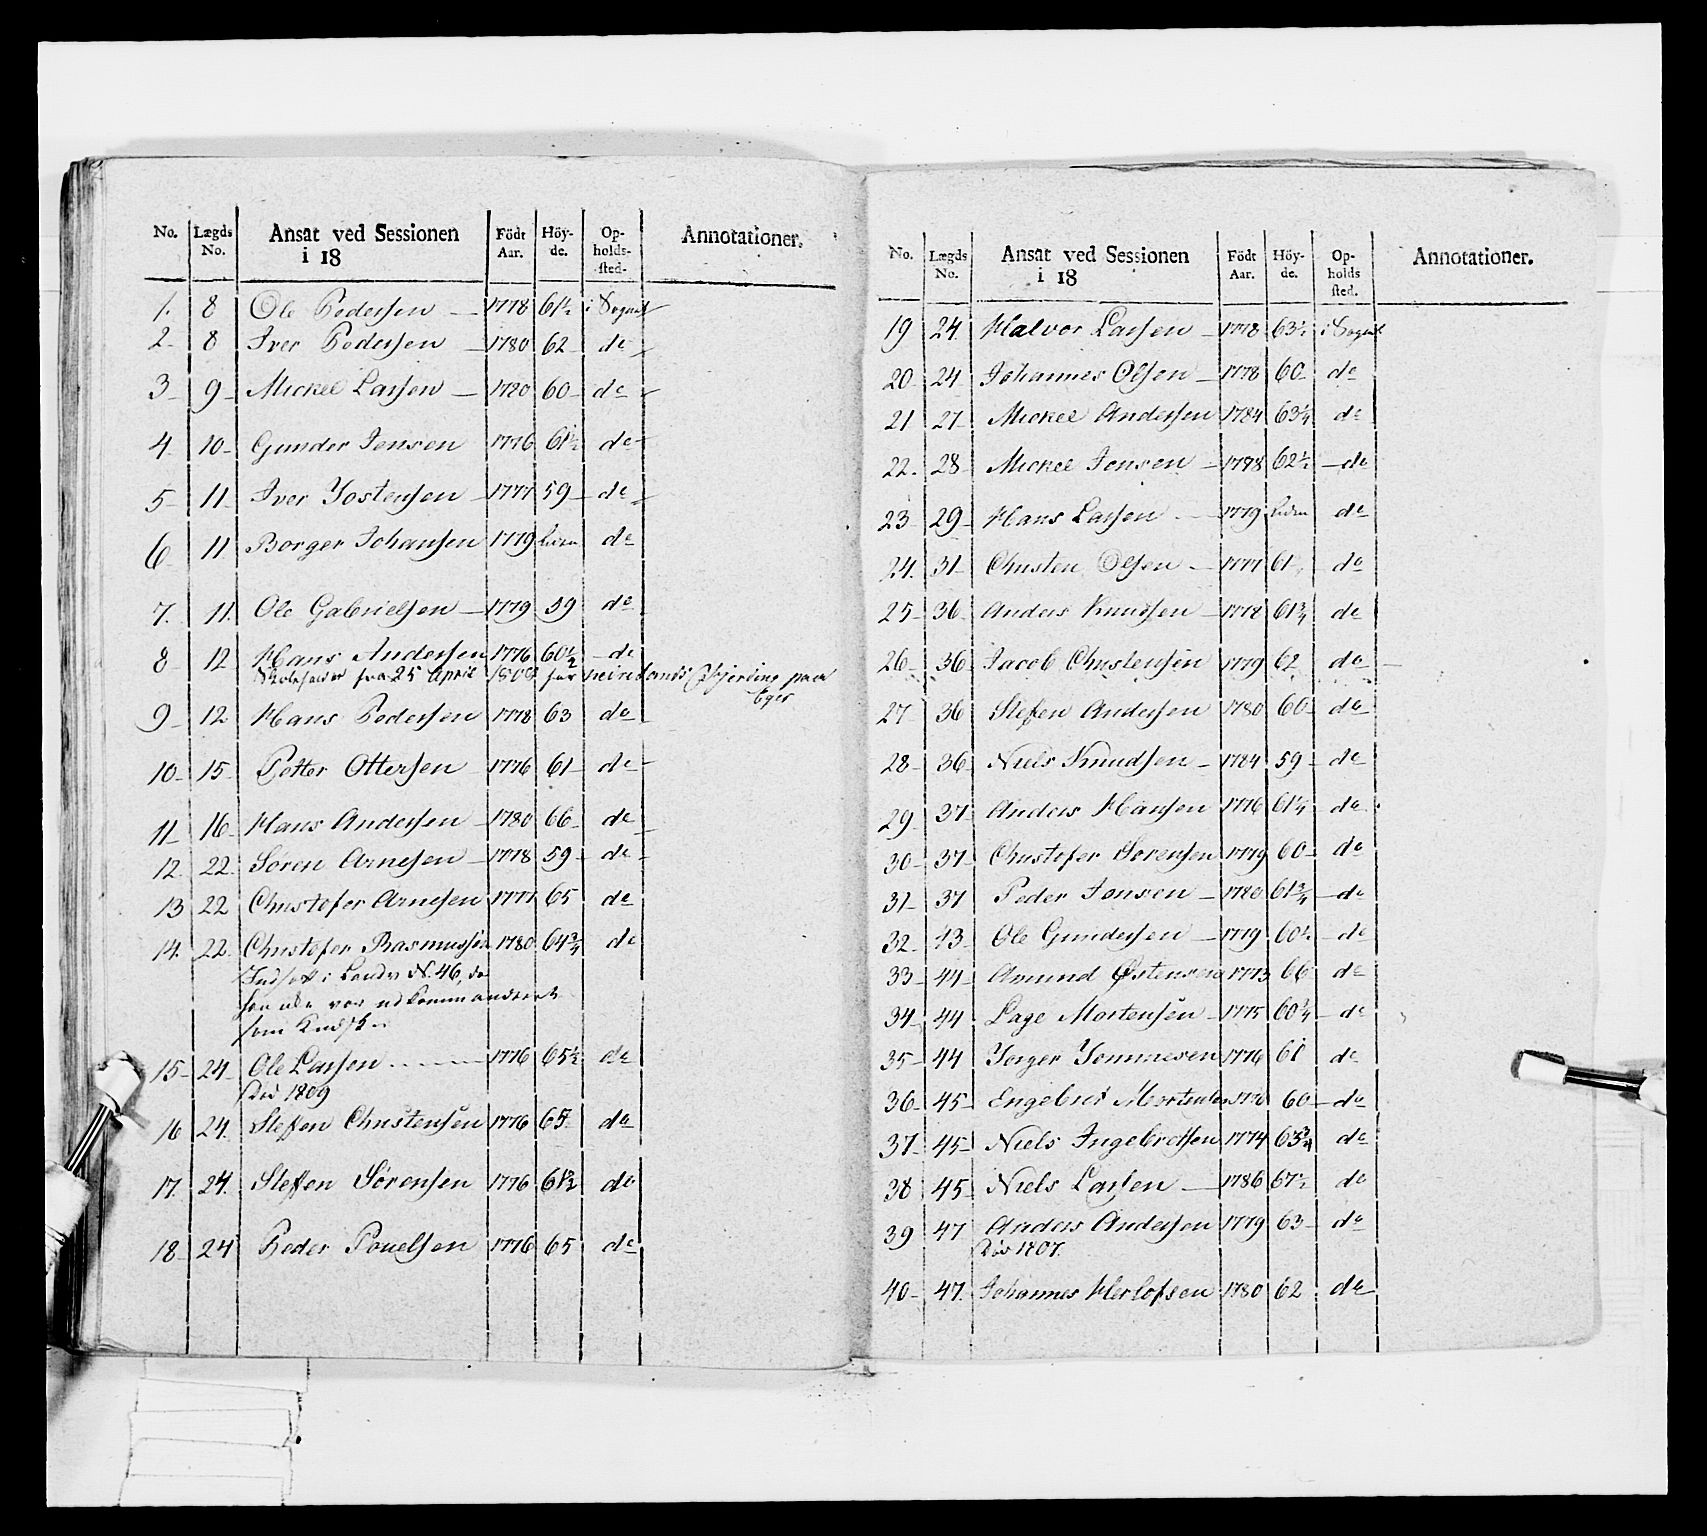 No. Lægds No. Ansat ved Sessionen i 18 Födt Aar. Höy-de. Op-holds-sted. Annotationer.
1. 8 Ole Pedersen 1778 61½ i Sognet
2 8 Iver Pedersen 1780 62 de
3 9 Mickel Larsen 1780 60 de
4 10 Gunder Jensen 1776 61½ de
5 11 Iver Jostensen 1777 59 de
6 11 Borger Johansen 1779 liden de
7. 11 Ole Gabrielsen 1779 59 de
8 12 Hans Andersen 1776 60½ de
fra 25 April
Eger
9 12 Hans Pedersen 1778 63 de
10 15 Petter Ottersen 1776 61 de
11 16 Hans Andersen 1780 66 de
12 22 Sören Arnesen 1778 59 de
13 22 Christofer Arnesen 1777 65 de
14. 22. Christofer Rasmussen 1780 64¾ de
Indsatt i N. 46, da
han var udkommanderet
som
15 24 Ole Larsen 1776 65½ de
Död 1809
16 24. Steffen Christensen 1776 65 de
17. 24. Steffen Sörensen 1776 61½ de
18 24 Peder Pouelsen 1776 65 de
No. Lægds No. Ansat ved Sessionen i 18 Födt Aar. Höy-de. Op-holds sted. Annotationer.
19 24 Halvor Larsen 1778 63½ i Sognet
20 24 Johannes Olsen 1778 60 de
21 27 Mickel Andersen 1784 63¼ de
22. 28 Mickel Jensen 1778 62½ de
23 29 Hans Larsen 1779 liden de
24. 31 Christen Olsen 1777 61 de
25 36 Anders Knudsen 1778 61¾ de
26 36 Jacob Christensen 1779 62 de
27 36 Stefen Andersen 1780 60 de
28 36 Niels Knudsen 1784 59 de
29 37 Anders Hansen 1776 61¼ de
30 37 Christofer Sörensen 1779 60 de
31 37 Peder Jonsen 1780 61¾ de
32 43 Ole Gundersen 1779 60½ de
33 44 Amund Östensen 1773 66 de
34 44 Lage Mortensen 1775 60¼ de
35 44 Jörger 1776 61 de
36 45 Engebret 60 de
37 45 Niels Ingebretsen 1774 63¾ de
38 45 Niels Larsen 1786 67½ de
39 47 Anders Andersen 1779 63 de
Död 1807.
40 47. Johannes Herlofsen 1780 62 de